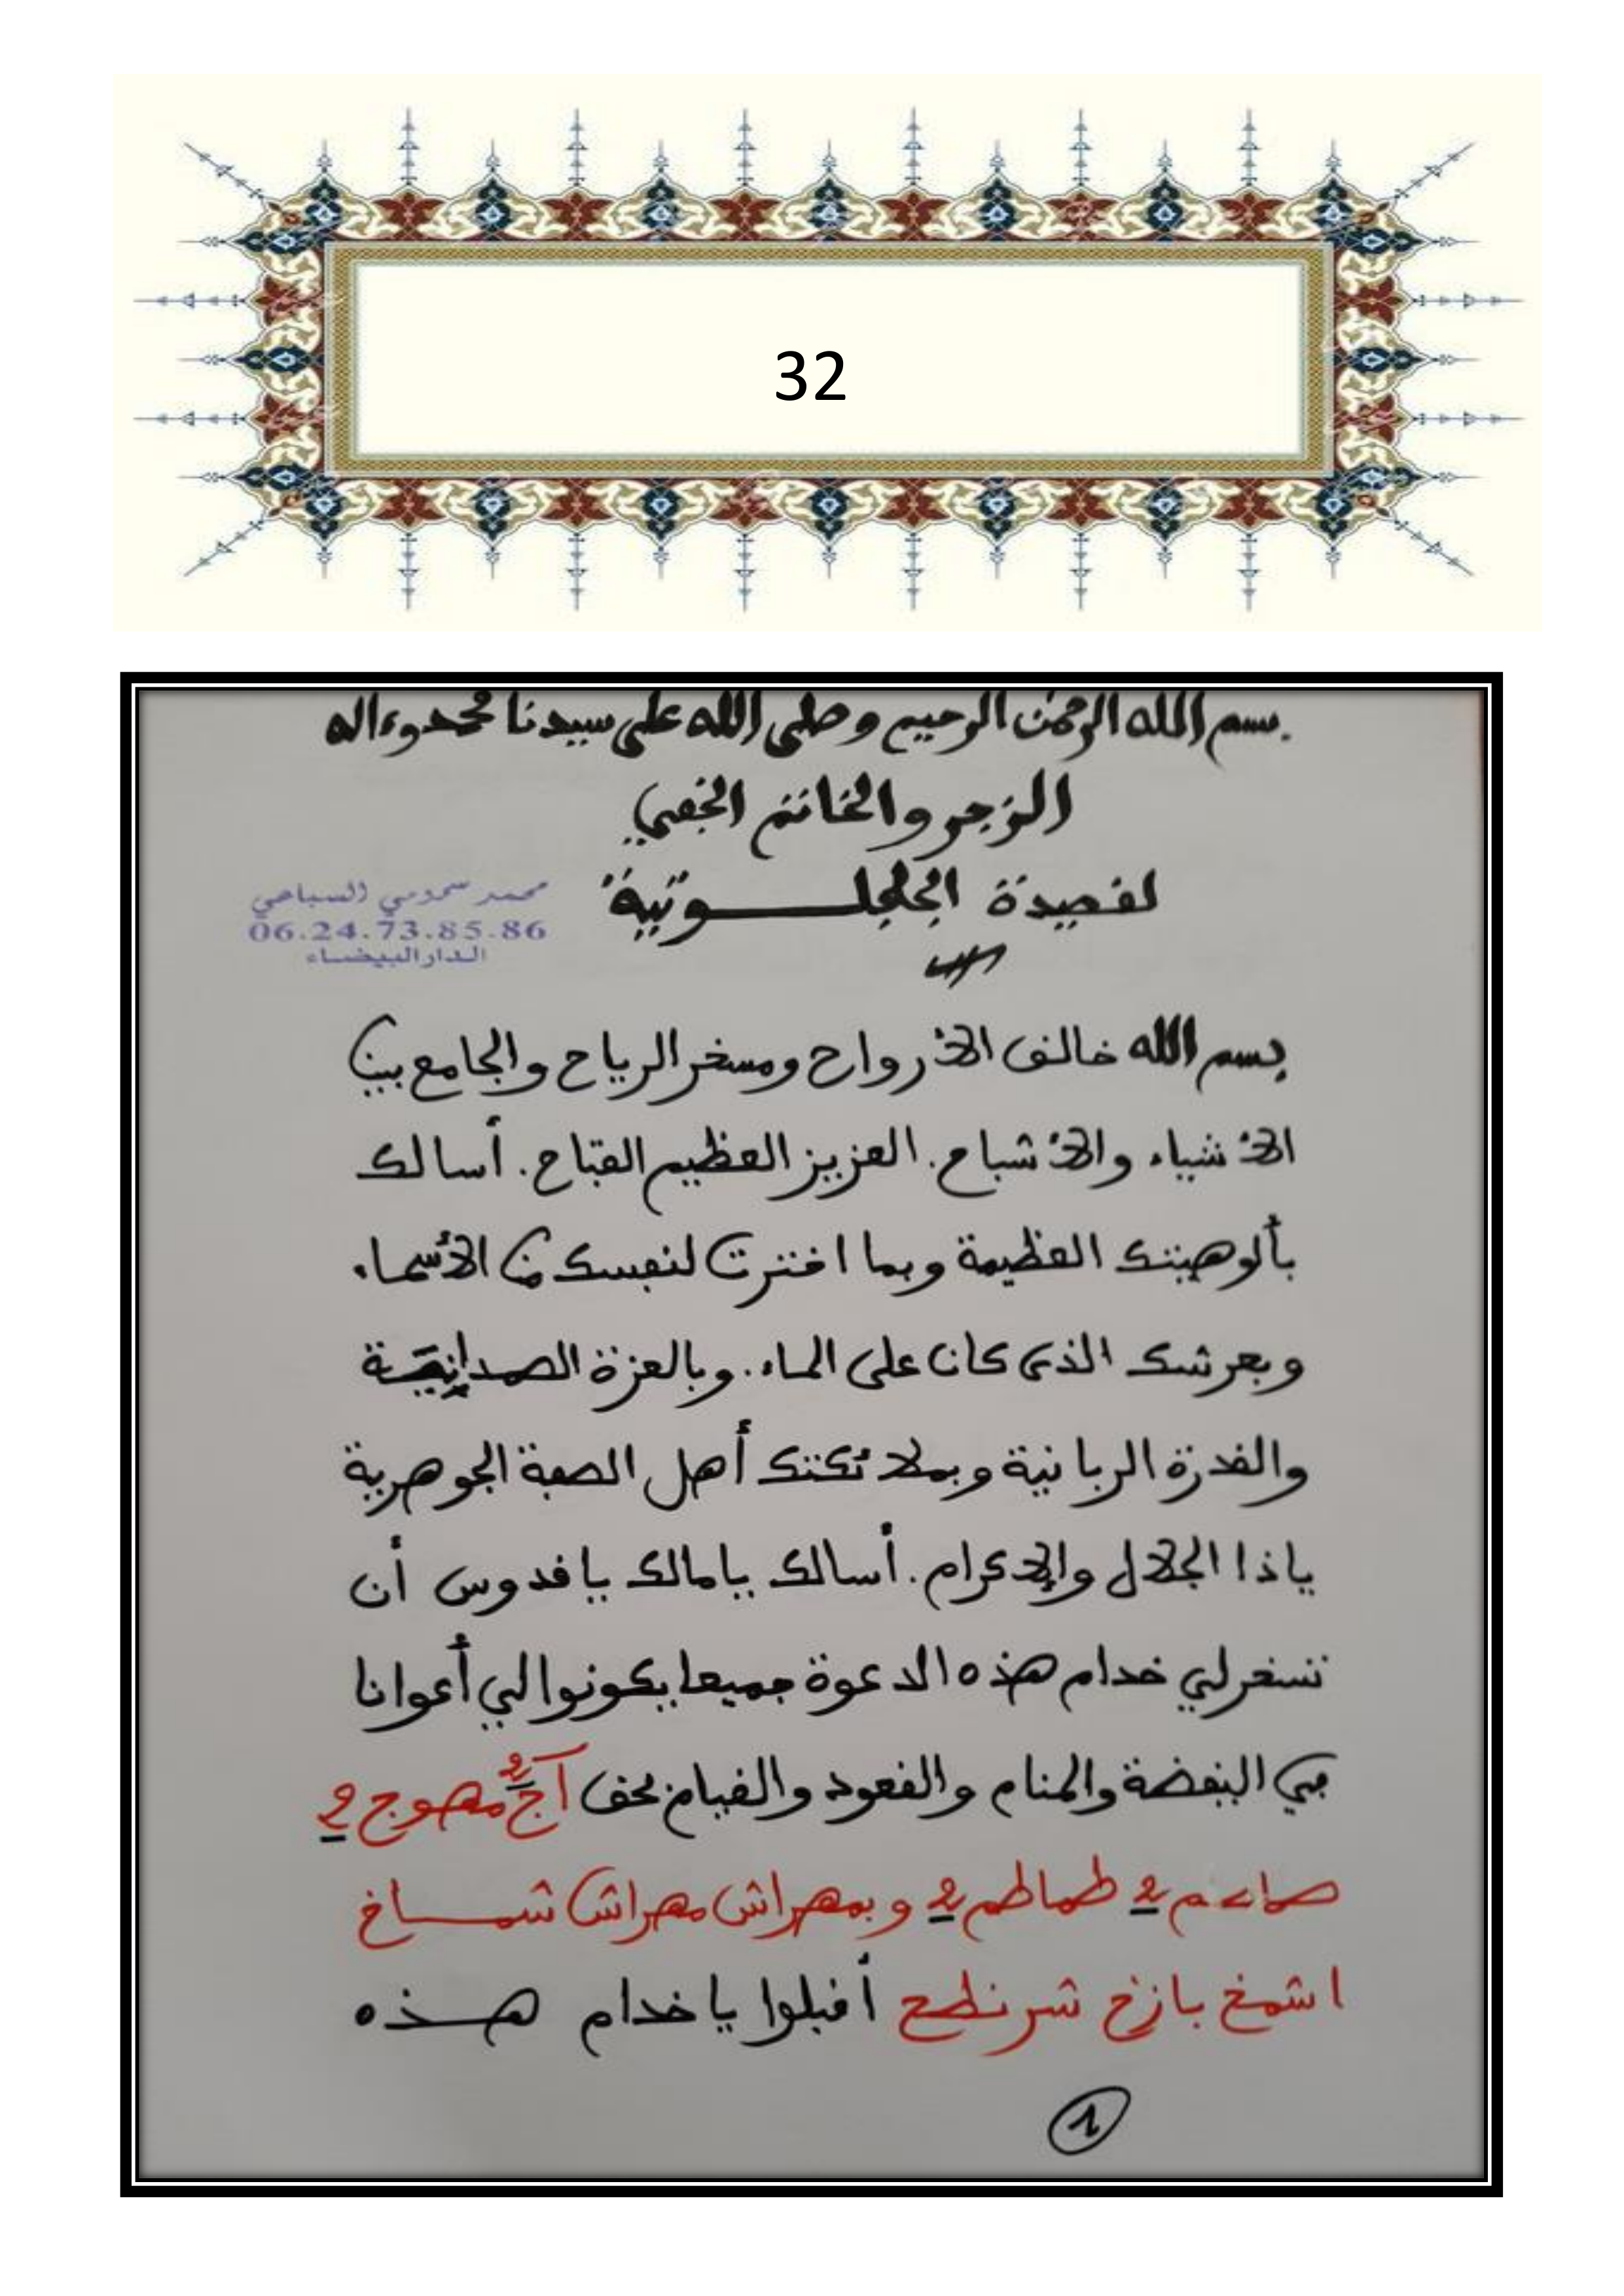 32
بسم الله الرحمن الرحيم وصلى الله على سيدنا محمد وءاله
الزجر والخاتم الخفي
لقصيدة الجلجلـــوتية
محمد السباعي
06.24.73.85.86
الدار البيضاء
بسم الله خالق الأرواح ومسخر الرياح والجامع بين
الأشياء والأشباح. العزيز العظيم الفتاح. أسالك
بألوهيتك العظيمة وبما اخترت لنفسك من الأسماء
وبعرشك الذي كان على الماء. وبالعزة الصمدانية
والقدرة الربانية وبملائكتك أهل الصفة الجوهرية
ياذا الجلال والإكرام. أسالك يامالك ياقدوس أن
تسخر لي خدام هذه الدعوة جميعا يكونوا لي أعوانا
في اليقضة والمنام والقعود والقيام بحق آج 2 مهوج 2
2 طماطم 2 وبمهراش مهراش شمـــاخ
اشمخ بازخ أقبلوا ياخدام هـــذه
1